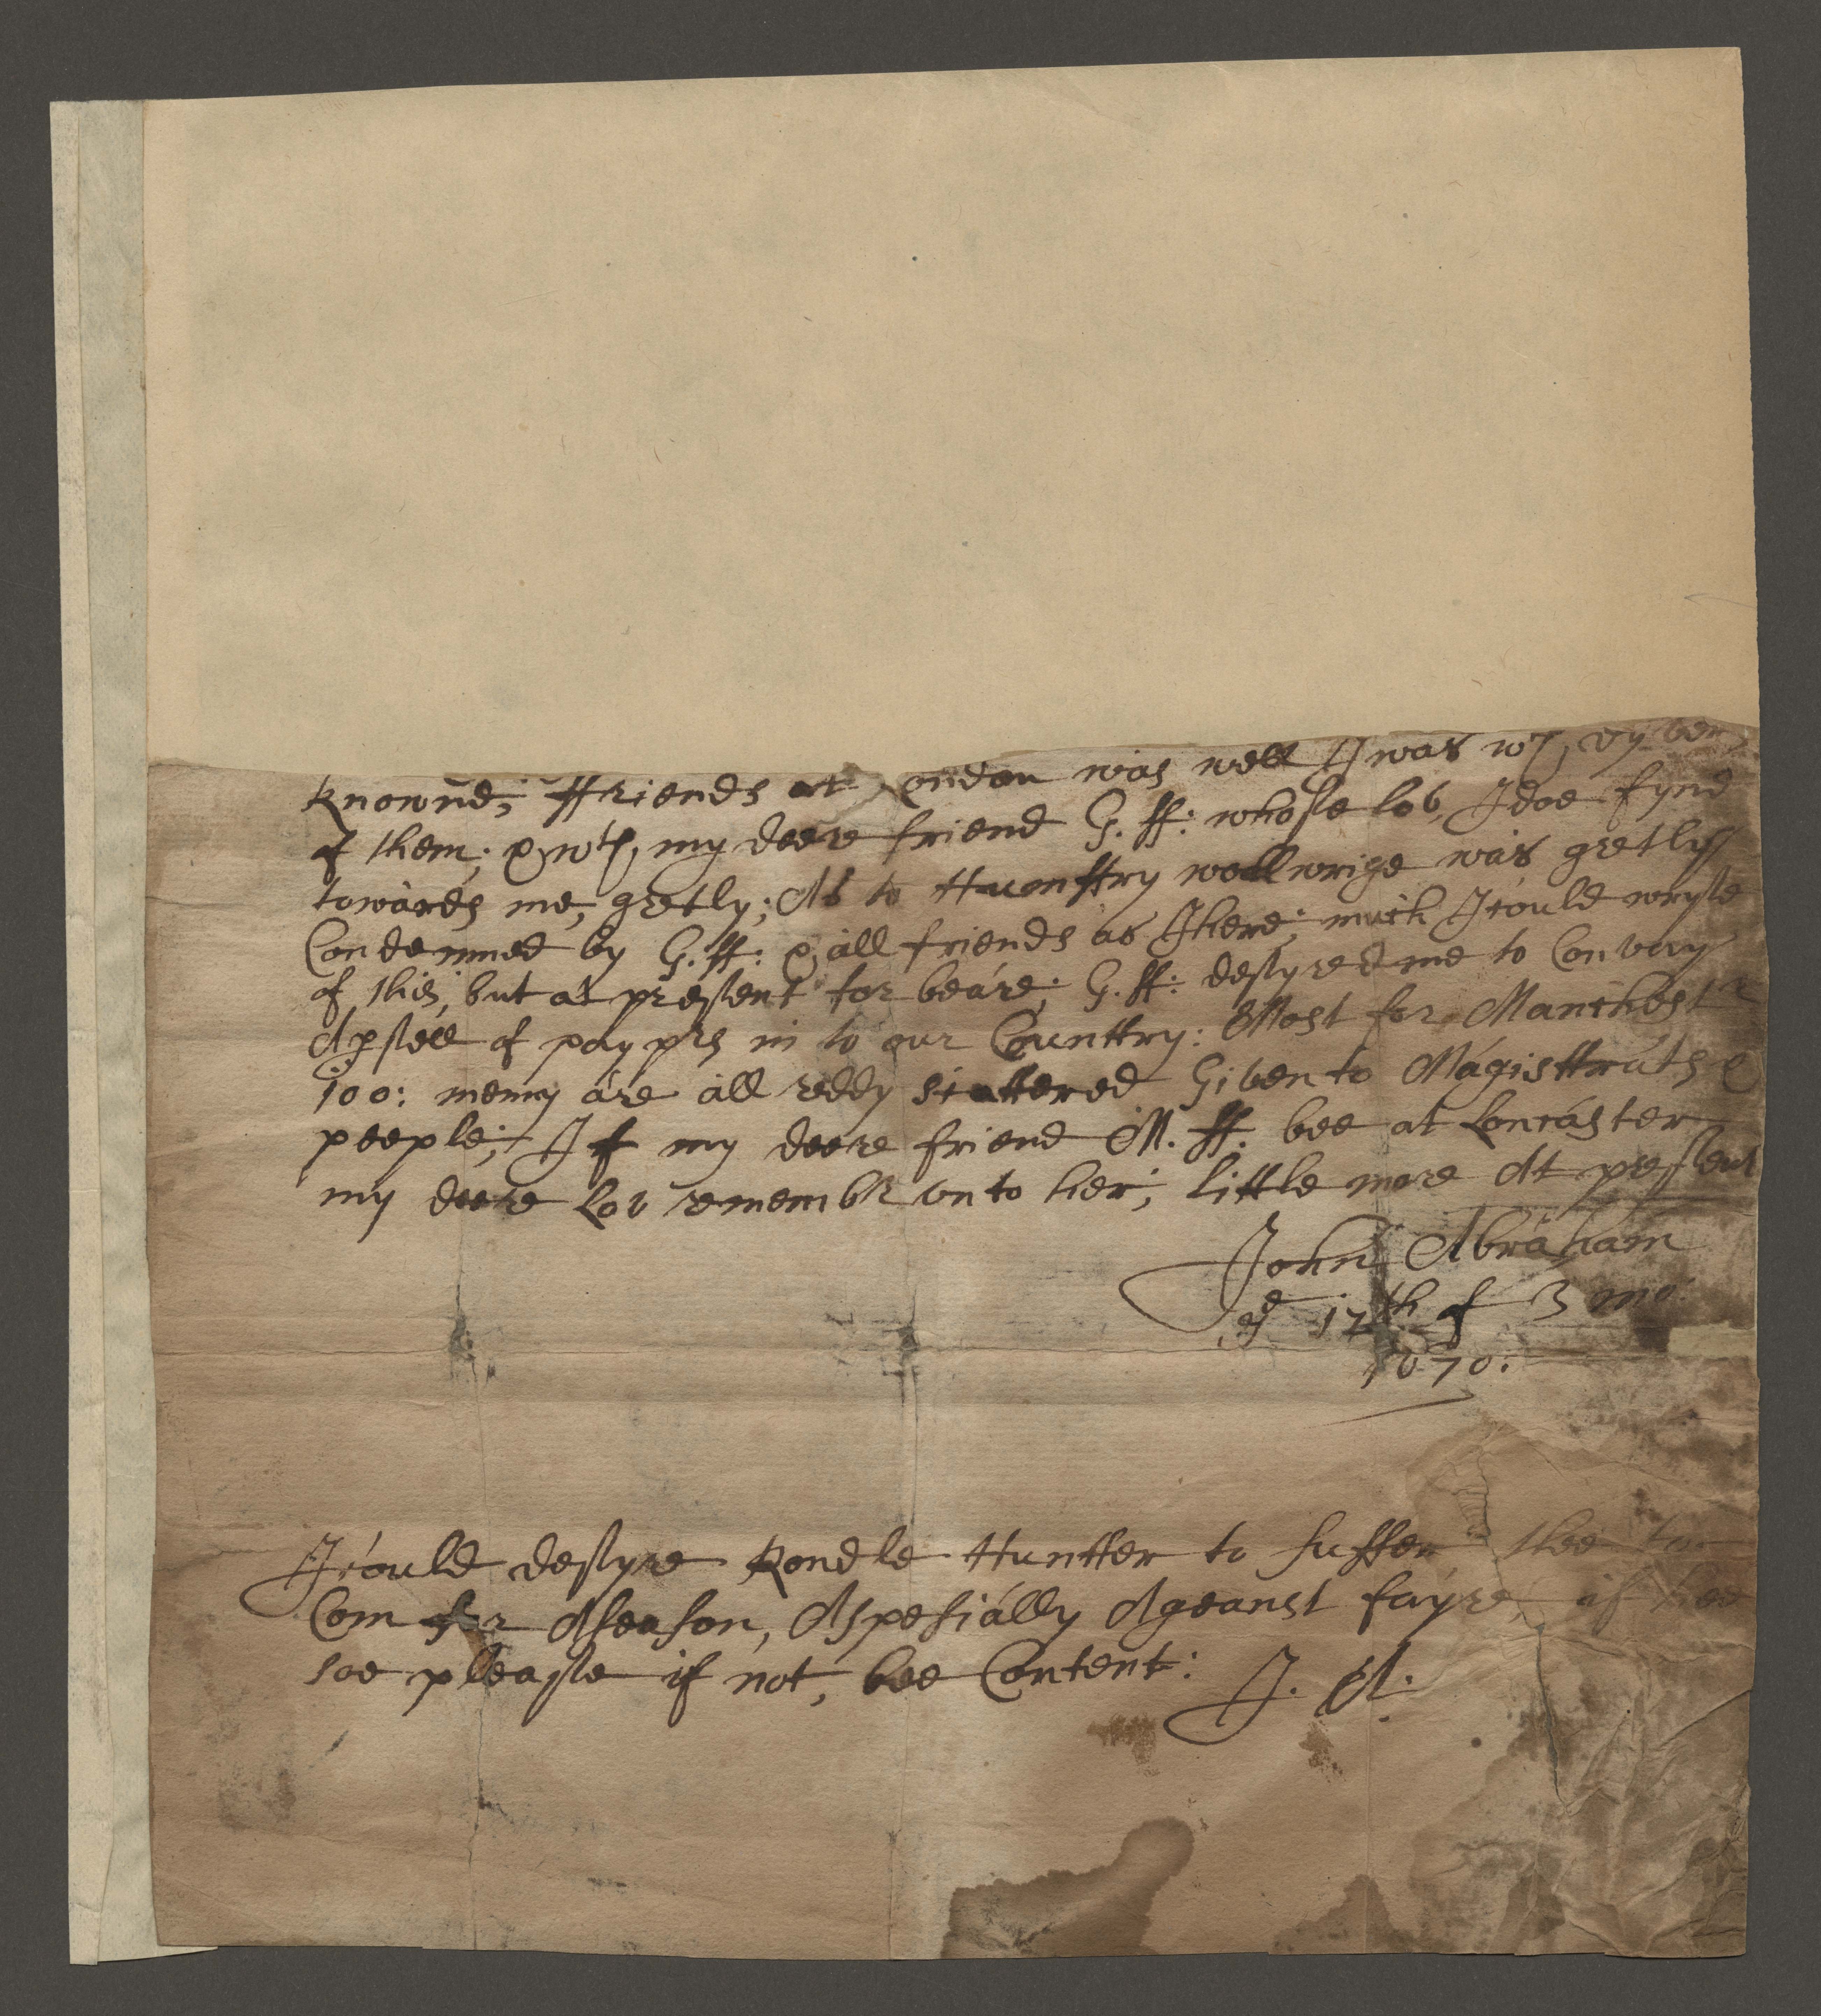 knownd; ffriends at London was well I was wth, vy
of them; & wth, my deere friend G. ff: whosse lov, I doe fynd
towards me, gretly; As to Humffry woollwrige was gretly
Condemned by G. ff: & all friends as I here; much I could wryte
of this, but at pressent for beare; G. ff: dessyred me to Convay
A pssell of paypers in to our Counttry: Most for Manchestr
100: meny are all reddy scattered Given to Magisttrats &
peeple; If my deere friend M. ff: bee at Loncaster
my deere Lov remembr vnto her; little more At pressent
John Abraham
ye 17th of 3 mo:
1670:
I could dessyre Rondle Huntter to suffer thee to
Com for A season, Aspesially Ageanst fayre, if hee
soe pleasse if not, bee Content: J. A.